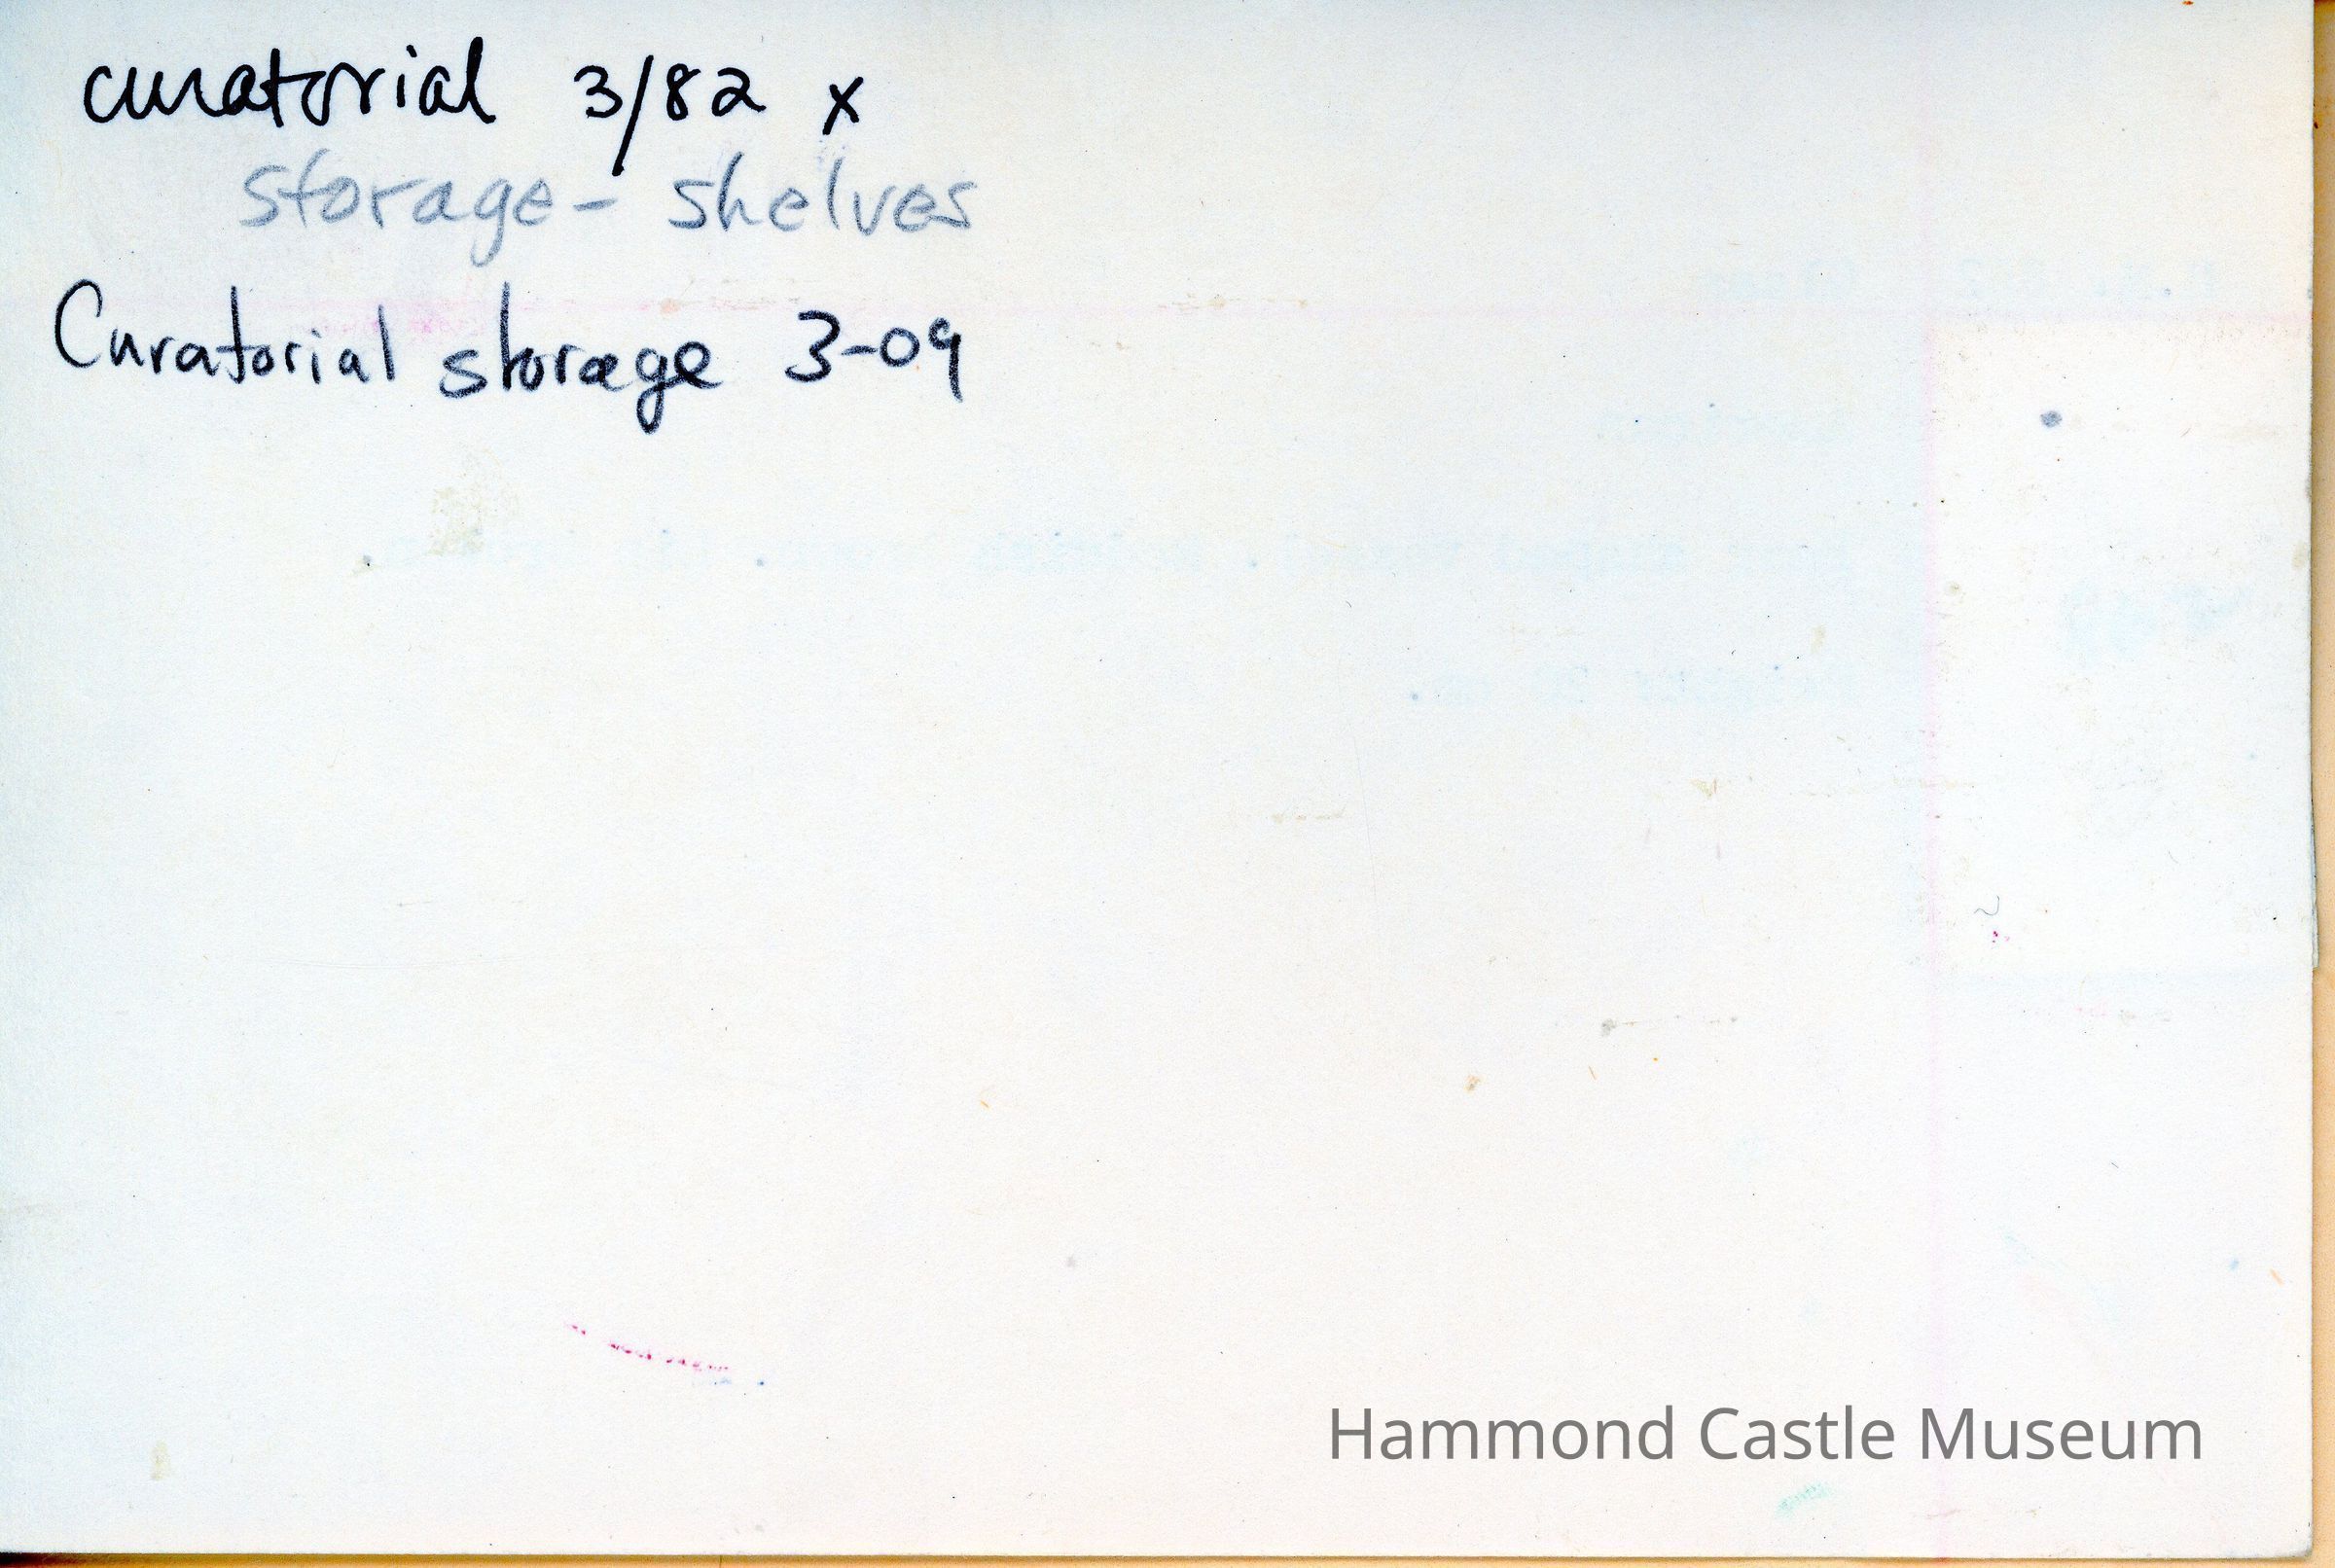 curatorial 3/82 x
storage - shelves
Curatorial storage 3-09
Hammond Castle Museum